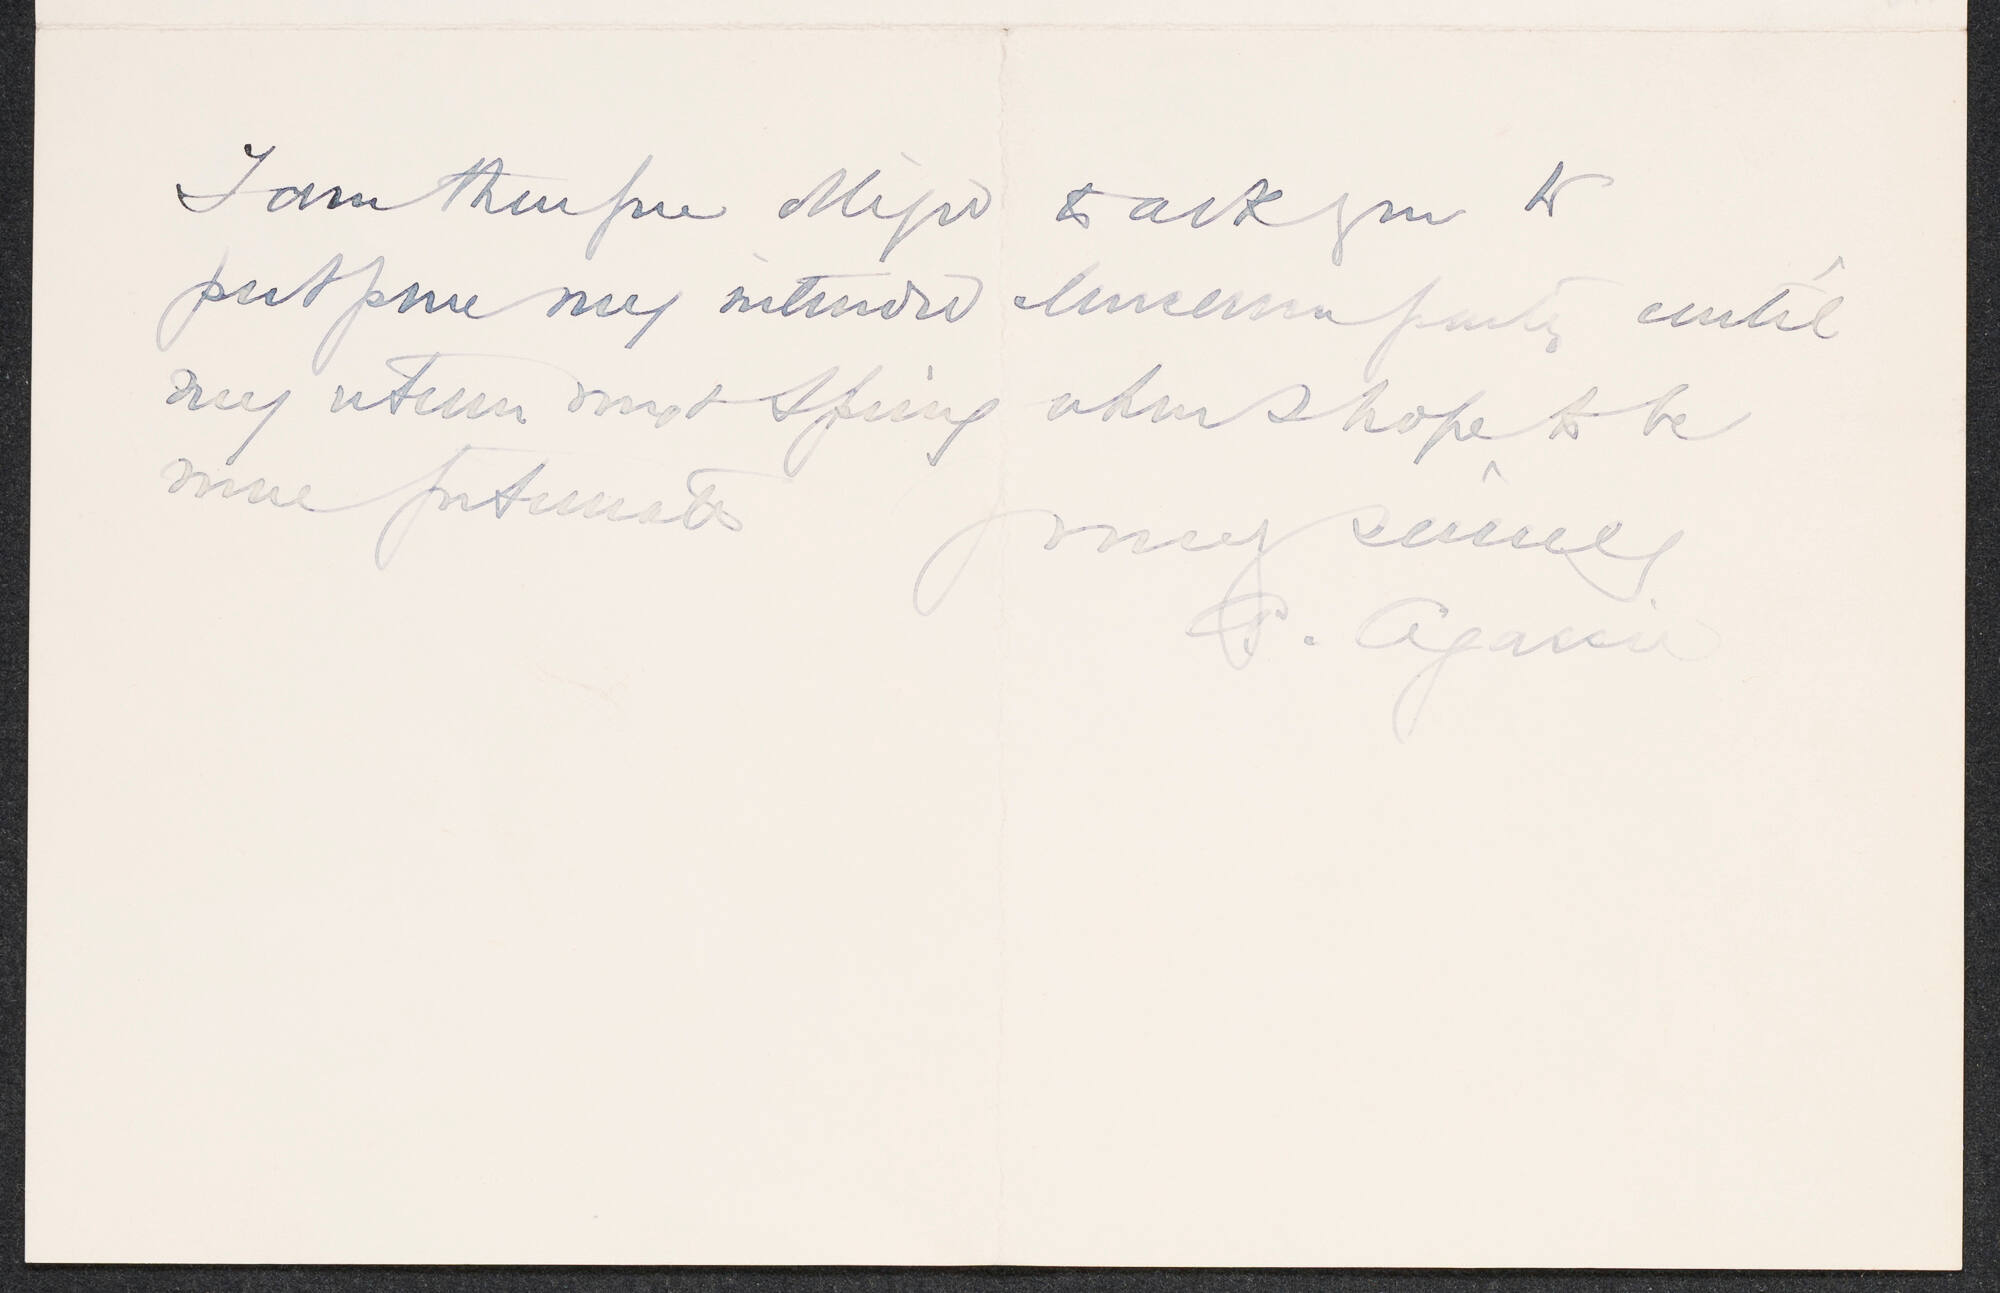 I am therefore obliged to ask you to
postpone my intended luncheon party until
my return next Spring when I hope to be
more fortunate
yours sincerely
Agassiz